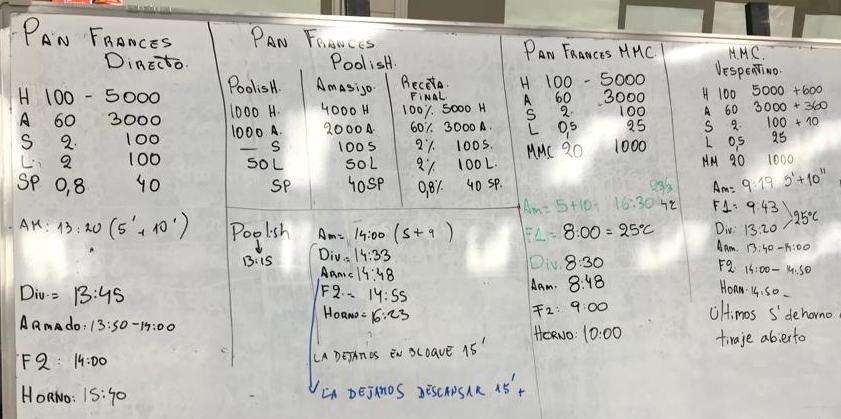 PAN FRANCES
DIRECTO.
H 100 - 5000
A 60 3000
S 2. 100
L. 2 100
SP 0,8 40
AM: 13:20 (5'+10')
Div.= 13:45
ARMADO: 13:50-14:00
F2: 14:00
HORNO: 15:40
PAN FRANCES
POOLISH.
POOLISH. AMASIJO. RECETA FINAL
1000 H. 4000 H 100% 5000 H
1000 A. 2000 A 60% 3000 A.
— S 100 S 2% 100 S.
50 L 50 L 2% 100 L.
SP 40 SP 0,8% 40 SP.
POOLISH
13:15
Am= 14:00 (5+9)
Div.= 14:33
ARM= 14:48
F2.= 14:55
HORNO= 16:23
LA DEJAMOS EN BLOQUE 15'
LA DEJAMOS DESCANSAR 15'+
PAN FRANCES MMC.
H 100 - 5000
A 60 3000
S 2. 100
L 0,5 25
MMC 20 1000
Am= 5+10- 16:30
F1= 8:00 = 25°C
Div. 8:30
ARM. 8:48
F2: 9:00
HORNO: 10:00
M.M.C.
VESPERTINO.
H 100 5000 +600
A 60 3000 +360
S 2. 100 +10
L 0,5 25
MM 20 1000
Am= 9:19 5'+10"
F1= 9:43 25°C
Div: 13:20
ARM. 13:40-14:00
F2 14:00-14:50
HORN. 14:50_
Últimos 5' de horno
tiraje abierto